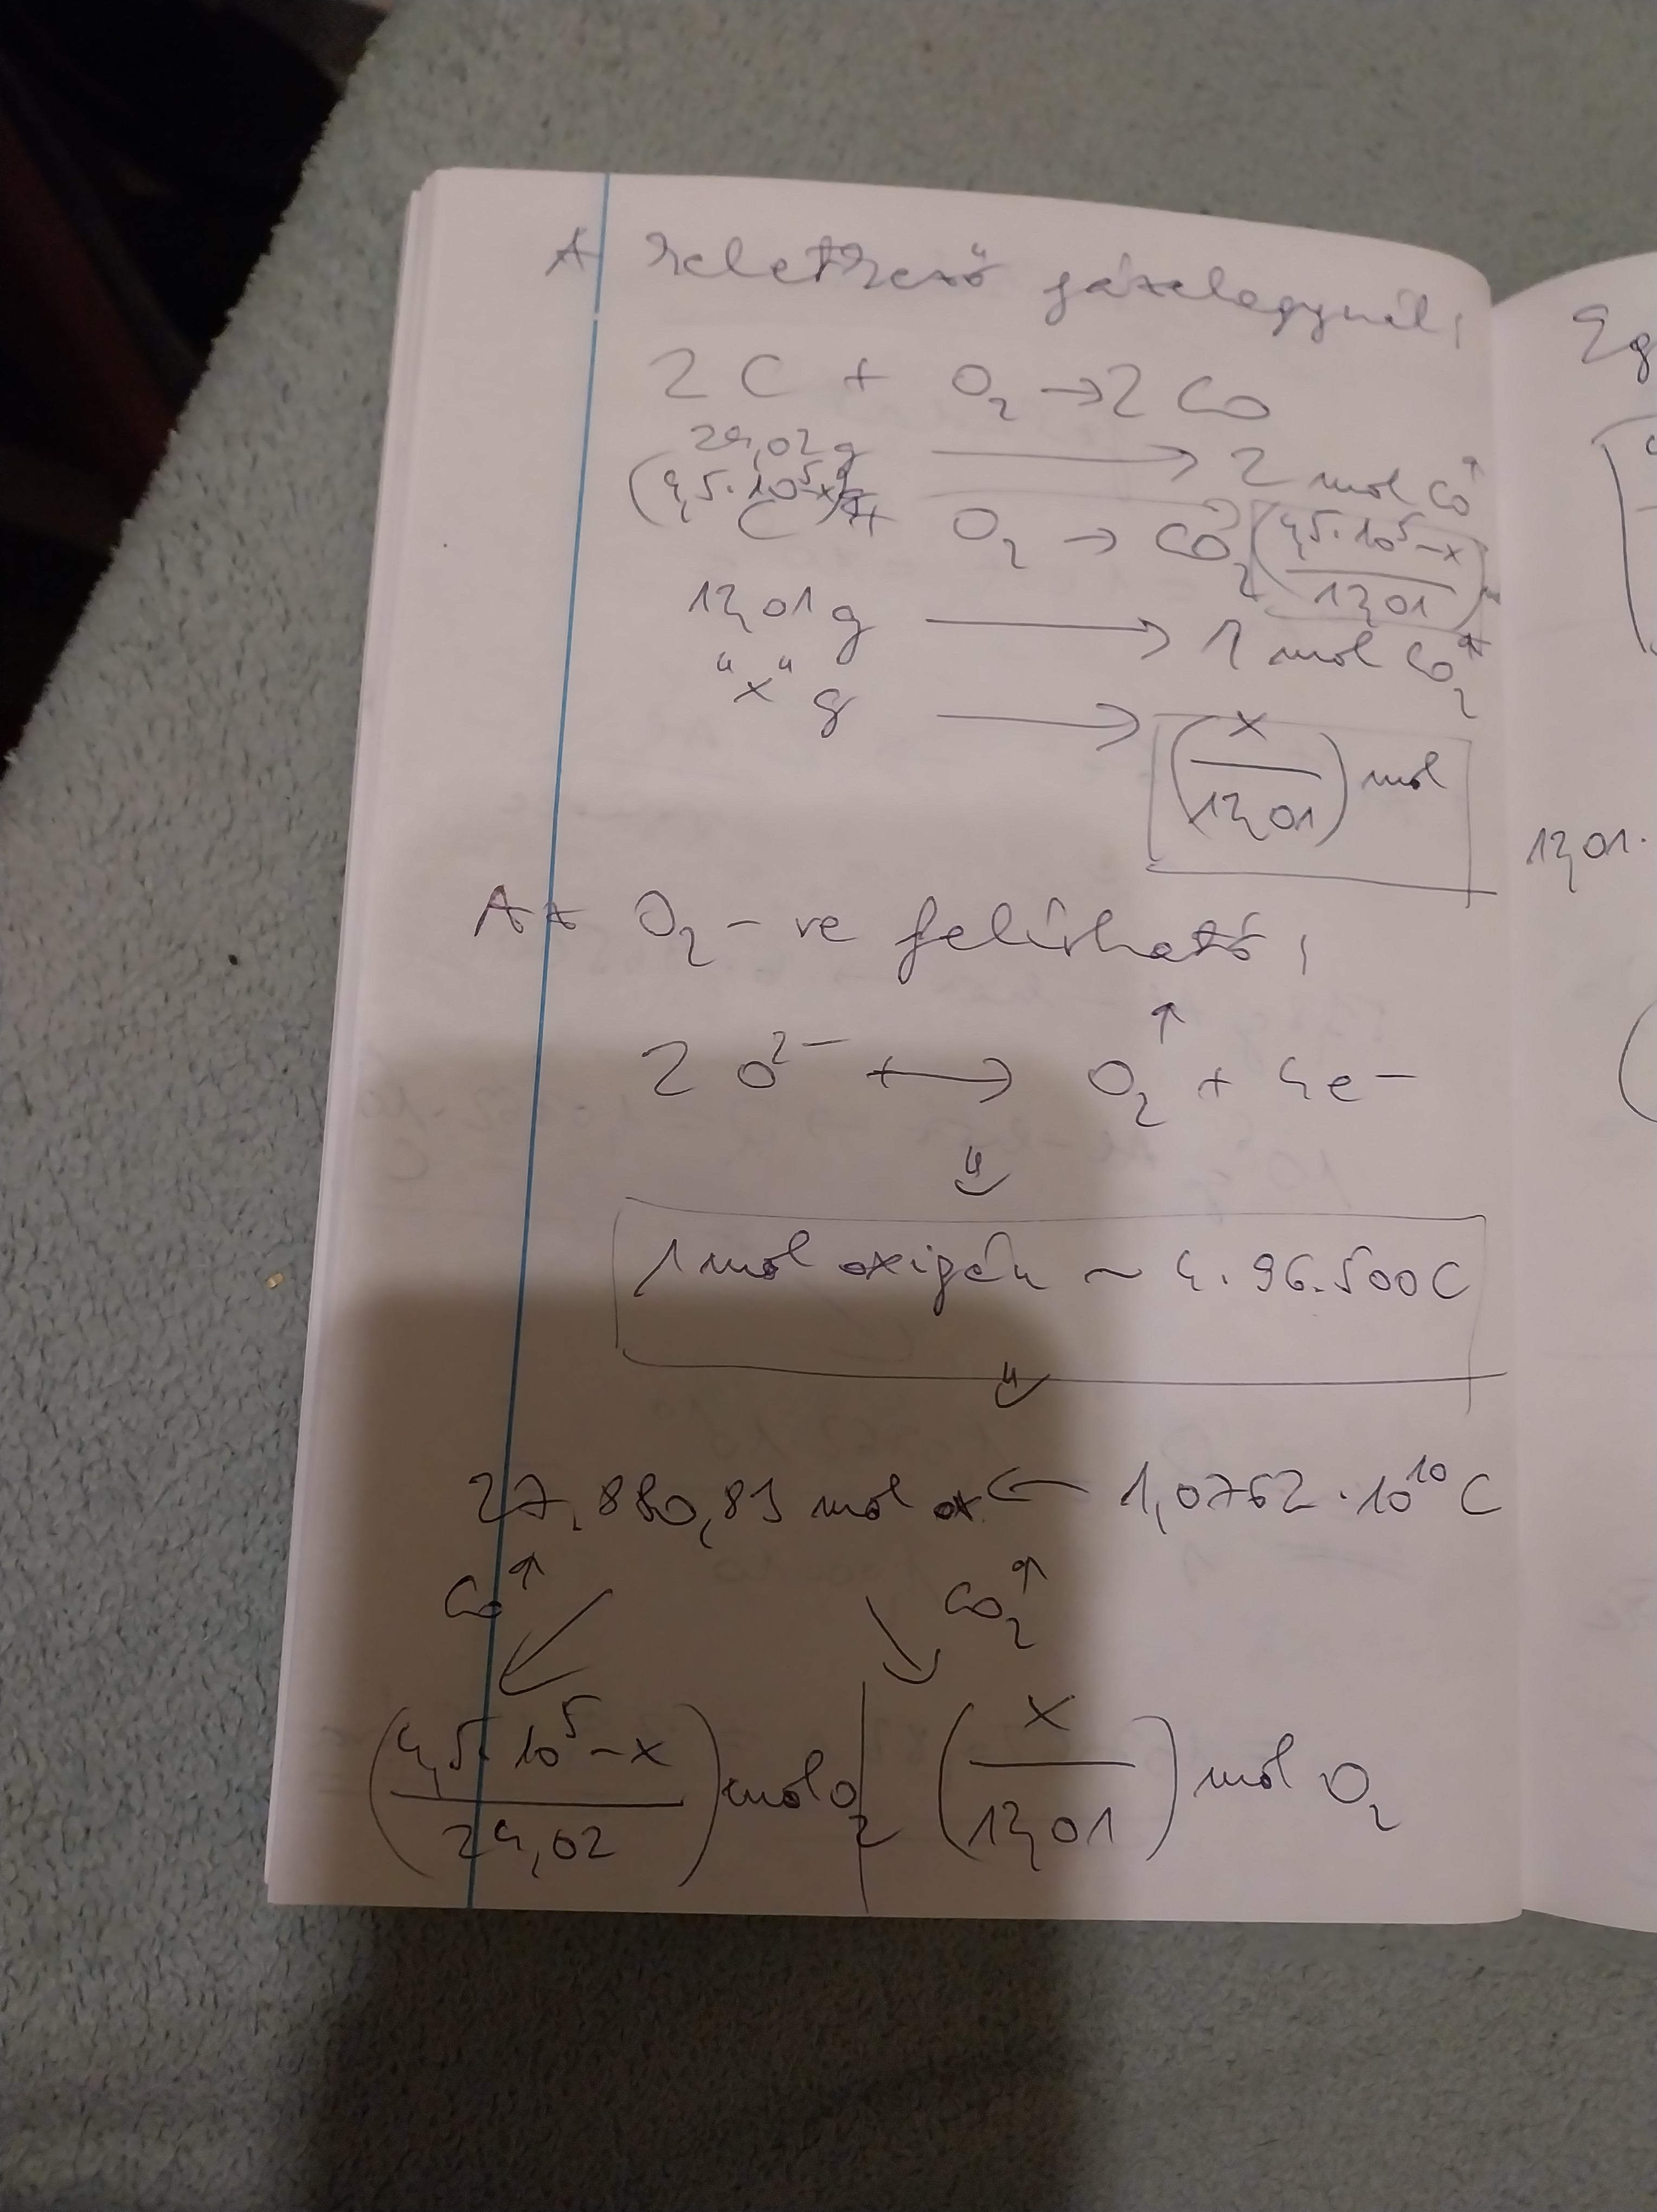 A keletkező gázelegynél:
2 C + O₂ → 2 CO
24,02 g → 2 mol CO↑
(4,5·10⁵-x)g → (4,5·10⁵-x / 12,01)
C + O₂ → CO₂
12,01 g → 1 mol CO₂↑
"x" g → (x / 12,01) mol
Az O₂-re felírható:
2 O²⁻ → O₂↑ + 4e⁻
1 mol oxigén ~ 4·96.500C
27.880,83 mol ox. ← 1,0762·10¹⁰ C
CO↑ CO₂↑
(4,5·10⁵-x / 24,02) mol O₂ | (x / 12,01) mol O₂
12,01·